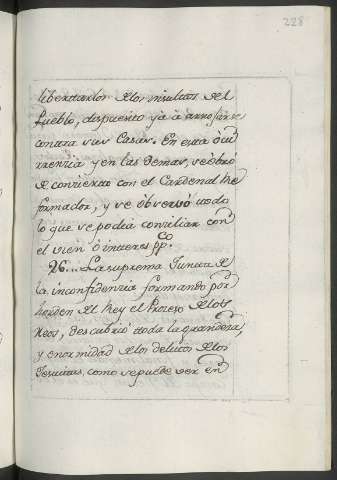 228
libertarlos de los insultos del
Pueblo, dispuesto ya a arrojarse
contra sus Casas. En esta ocu
rrenzia y en las demas, se obró
de concierto con el Cardenal Re
formador, y se observó todo
lo que se podia conziliar con
el vien ó interes pp.co
26... La suprema Junta de
la inconfidenzia formando por
horden del Rey el Prozeso de los
Reos, descubrió toda la grandeza,
y enormidad de los delitos de los
Jesuitas, como se puede ver en